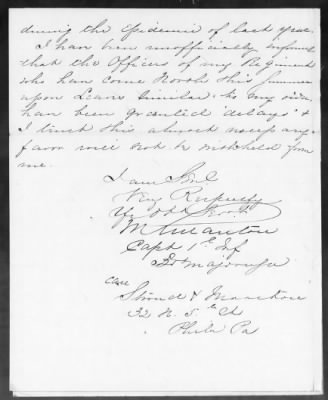 during the Epidemic of last year.
I have been unofficially informed
that the Officers of my Regiment
who have come North this Summer
upon Leave similar to my own
have been granted delays &
I trust this almost necessary
favor will not be withheld from
me.
I am Sir
Very Respectfy
Yr Obt Servt
Capt 1st Inf
Bvt Major
Care
32 N. 5th St
Phila Pa